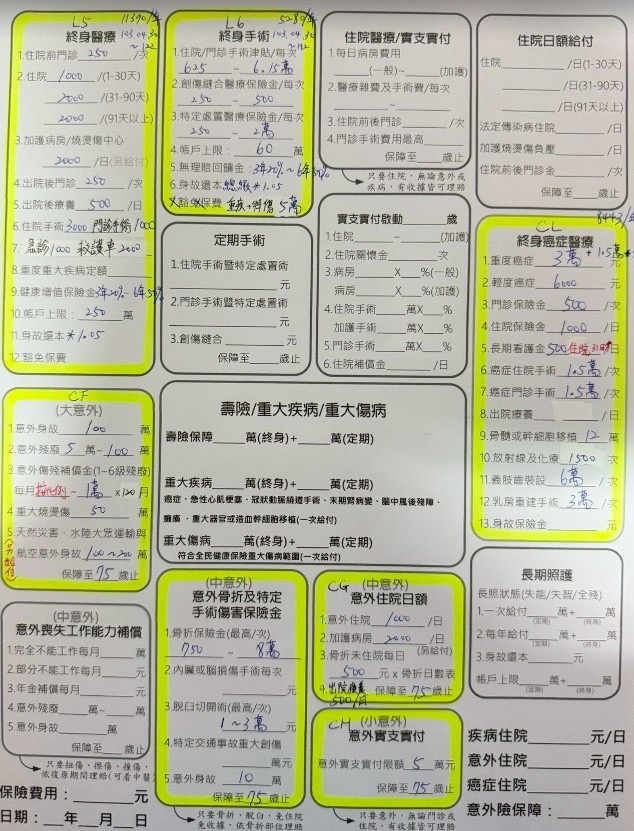 L5 11390/年
終身醫療 103.04.30
~122
1.住院前門診 250 /次
2.住院 1000 /(1-30天)
2000 /(31-90天)
2000 /(91天以上)
3.加護病房/燒燙傷中心
2000 /日(另給付)
4.出院後門診 250 /次
5.出院後療養 500 /日
6.住院手術 3000 門診手術 1000
7. 急診1000 救護車 2000
8.重度重大疾病定額
9.健康增值保險金 3年20%~6年50%
10.帳戶上限: 250 萬
11.身故還本 *1.05
12.豁免保費
L6 5289/年
終身手術 103.04.30
~122
1.住院/門診手術津貼/每次
625 ~ 6.15萬
2.創傷縫合醫療保險金/每次
250 ~ 500
3.特定處置醫療保險金/每次
250 ~ 2萬
4.帳戶上限: 60 萬
5.無理賠回饋金: 3年20%~6年50%
6.身故還本 總繳*1.05
豁免保費 重疾+特傷 5萬
住院醫療/實支實付
1.每日病房費用
(一般)~ (加護)
2.醫療雜費及手術費/每次
~
3.住院前後門診 /次
4.門診手術費用最高
保障至 歲止
只要住院,無論意外或
疾病,有收據皆可理賠
住院日額給付
住院 /日(1-30天)
/日(31-90天)
/日(91天以上)
法定傳染病住院 /日
加護燒燙傷負壓 /日
住院前後門診金 /日
保障至 歲止
定期手術
1.住院手術暨特定處置術
元
2.門診手術暨特定處置術
元
3.創傷縫合 元
保障至 歲止
實支實付啟動 歲
1.住院 ~ (加護)
2.住院關懷金 /次
3.病房 X %(一般)
病房 X %(加護)
4.住院手術 萬X %
加護手術 萬X %
5.門診手術 萬X %
6.住院補償金 /日
CL 8443/年
終身癌症醫療
1.重度癌症 3萬 + 1.5萬 元
2.輕度癌症 6000 元
3.門診保險金 500 /次
4.住院保險金 1000 /日
5.長期看護金 500 住院31日 日
6.癌症住院手術 1.5萬 /次
7.癌症門診手術 1.5萬 /次
8.出院療養 /日
9.骨髓或幹細胞移植 12 萬
10.放射線及化療 1500 次
11.義肢齒裝設 6萬 /次
12.乳房重建手術 3萬 /次
13.身故保險金 元
CF
(大意外)
1.意外身故 100 萬
2.意外殘廢 5 萬~ 100 萬
3.意外傷殘補償金(1~6級殘廢)
每月 按比例 ~ 1萬 x120 月
4.重大燒燙傷 50 萬
5.天然災害、水陸大眾運輸與
航空意外身故 100~200 萬
保障至 75 歲止
壽險/重大疾病/重大傷病
壽險保障 萬(終身)+ 萬(定期)
重大疾病 萬(終身)+ 萬(定期)
癌症、急性心肌梗塞、冠狀動脈繞道手術、末期腎病變、腦中風後殘障、
癱瘓、重大器官或造血幹細胞移植(一次給付)
重大傷病 萬(終身)+ 萬(定期)
符合全民健康保險重大傷病範圍(一次給付)
(中意外)
意外喪失工作能力補償
1.完全不能工作每月 萬
2.部分不能工作每月 元
3.年金補償每月 元
4.意外殘廢 萬~ 萬
5.意外身故 萬
保障至 歲止
只要扭傷、擦傷、撞傷、
依復原期間理賠(可看中醫)
保險費用: 元
日期: 年 月 日
(中意外)
意外骨折及特定
手術傷害保險金
1.骨折保險金(最高/次)
750 ~ 8萬
2.內臟或腦損傷手術每次
元
3.脫臼切開術(最高/次)
1~3萬 元
4.特定交通事故重大創傷
萬元
5.意外身故 10 萬
保障至 75 歲止
只要骨折、脫臼,免住院
免收據,依骨折部位理賠
CG (中意外)
意外住院日額
1.意外住院 1000 /日
2.加護病房 2000 /日
3.骨折未住院每日 (另給付)
500 元 x 骨折日數表
4.出院療養 500/日 保障至 75 歲止
CH (小意外)
意外實支實付
意外實支實付限額 5 萬元
保障至 75 歲止
只要意外,無論門診或
住院,有收據皆可理賠
長期照護
長照狀態(失能/失智/全殘)
1.一次給付 萬+ 萬
(定期) (終身)
2.每年給付 萬+ 萬
(定期) (終身)
3.身故還本 元
帳戶上限 萬+ 萬
(定期) (終身)
疾病住院 元/日
意外住院 元/日
癌症住院 元/日
意外險保障: 萬